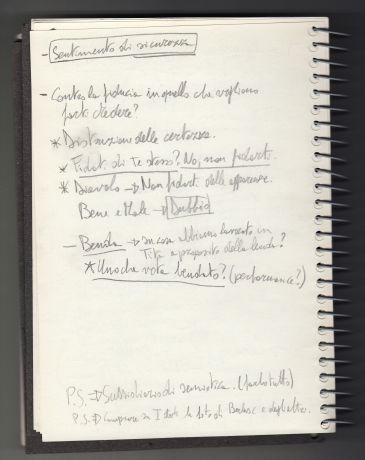 - Sentimento di sicurezza
- Contro la fiducia in quello che vogliono
farti credere?
* Distruzione delle certezze.
* Fidati di te stesso? No, non fidarti.
* Diavolo → Non fidarti delle apparenze.
Bene e Male → Dubbio
- Benda → In cosa abbiamo lavorato in
a proposito della benda?
* Uno che vota bendato? (performance?)
P.S. → Sussidiario di semiotica. (
P.S. → Comprare la lista di e degli altri.